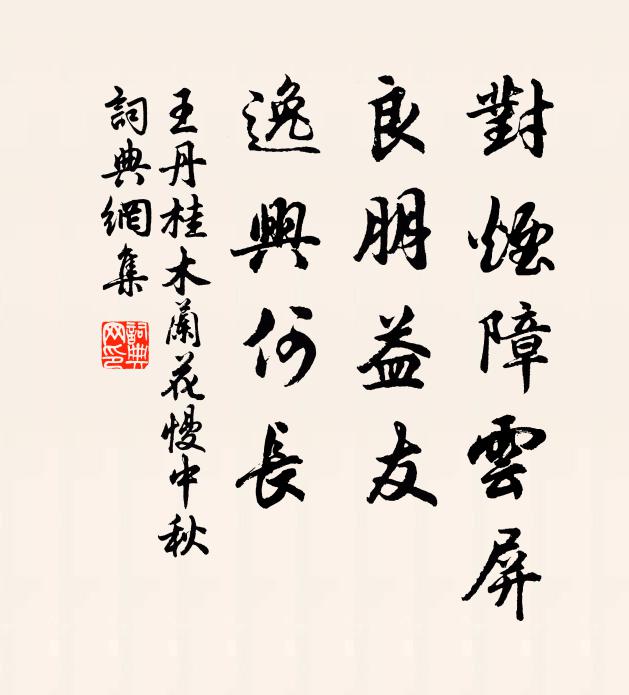 對煙障雲屏
良朋益友
逸興何長
王丹桂木蘭花慢中秋
詞典網集
詞典网印